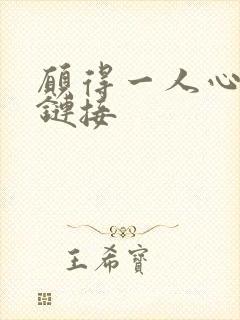 願得一人心
鏈接
王希寶